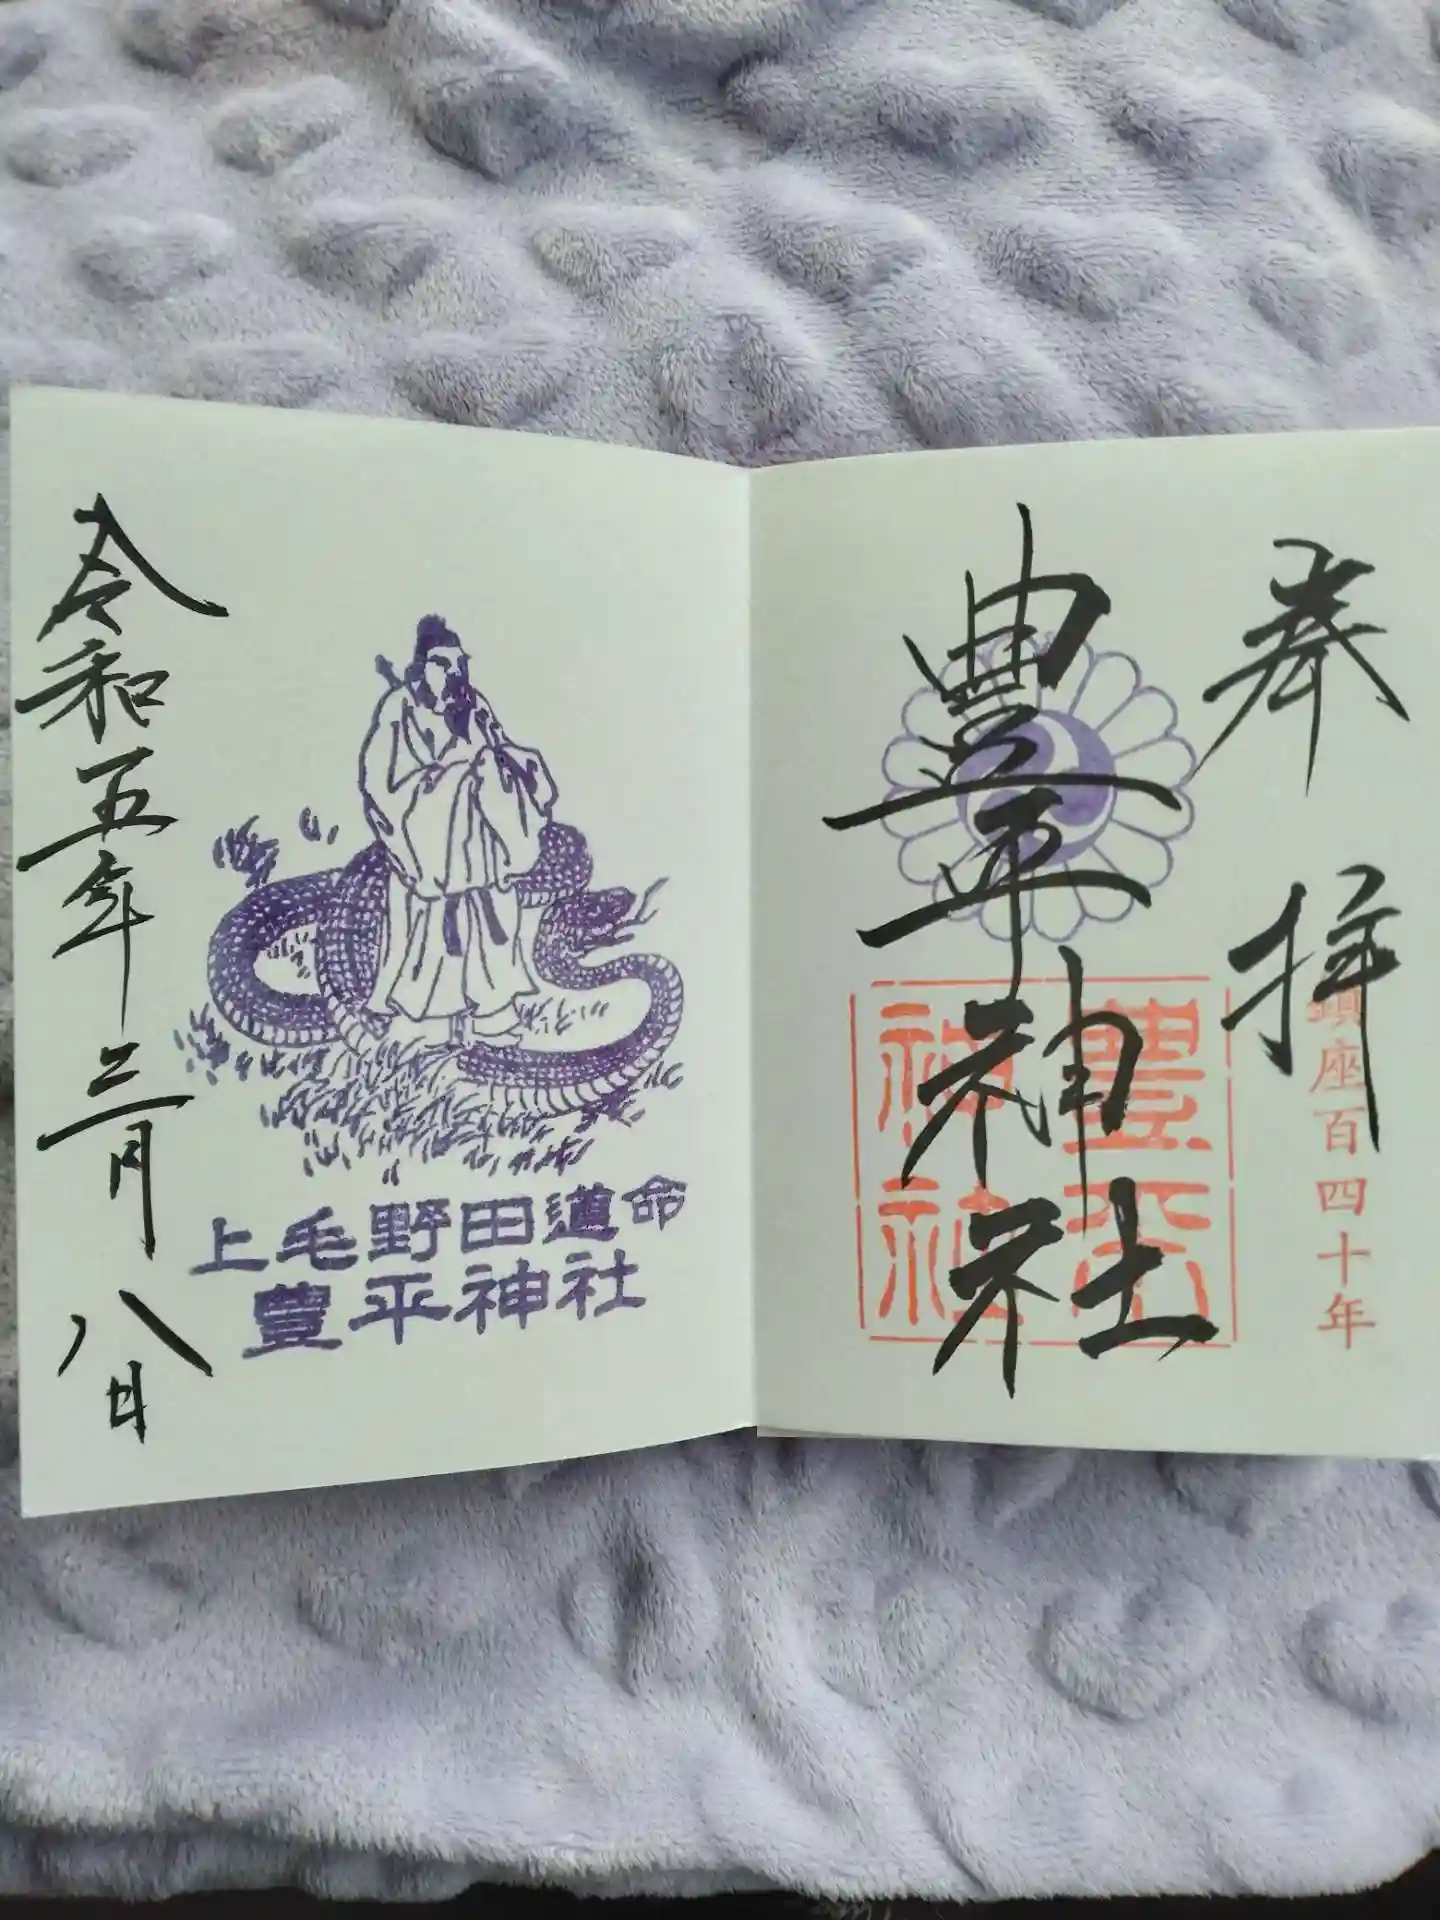 奉拝
鎮座百四十年
豊平神社
豊平
神社
上毛野田道命
豊平神社
令和五年三月八日